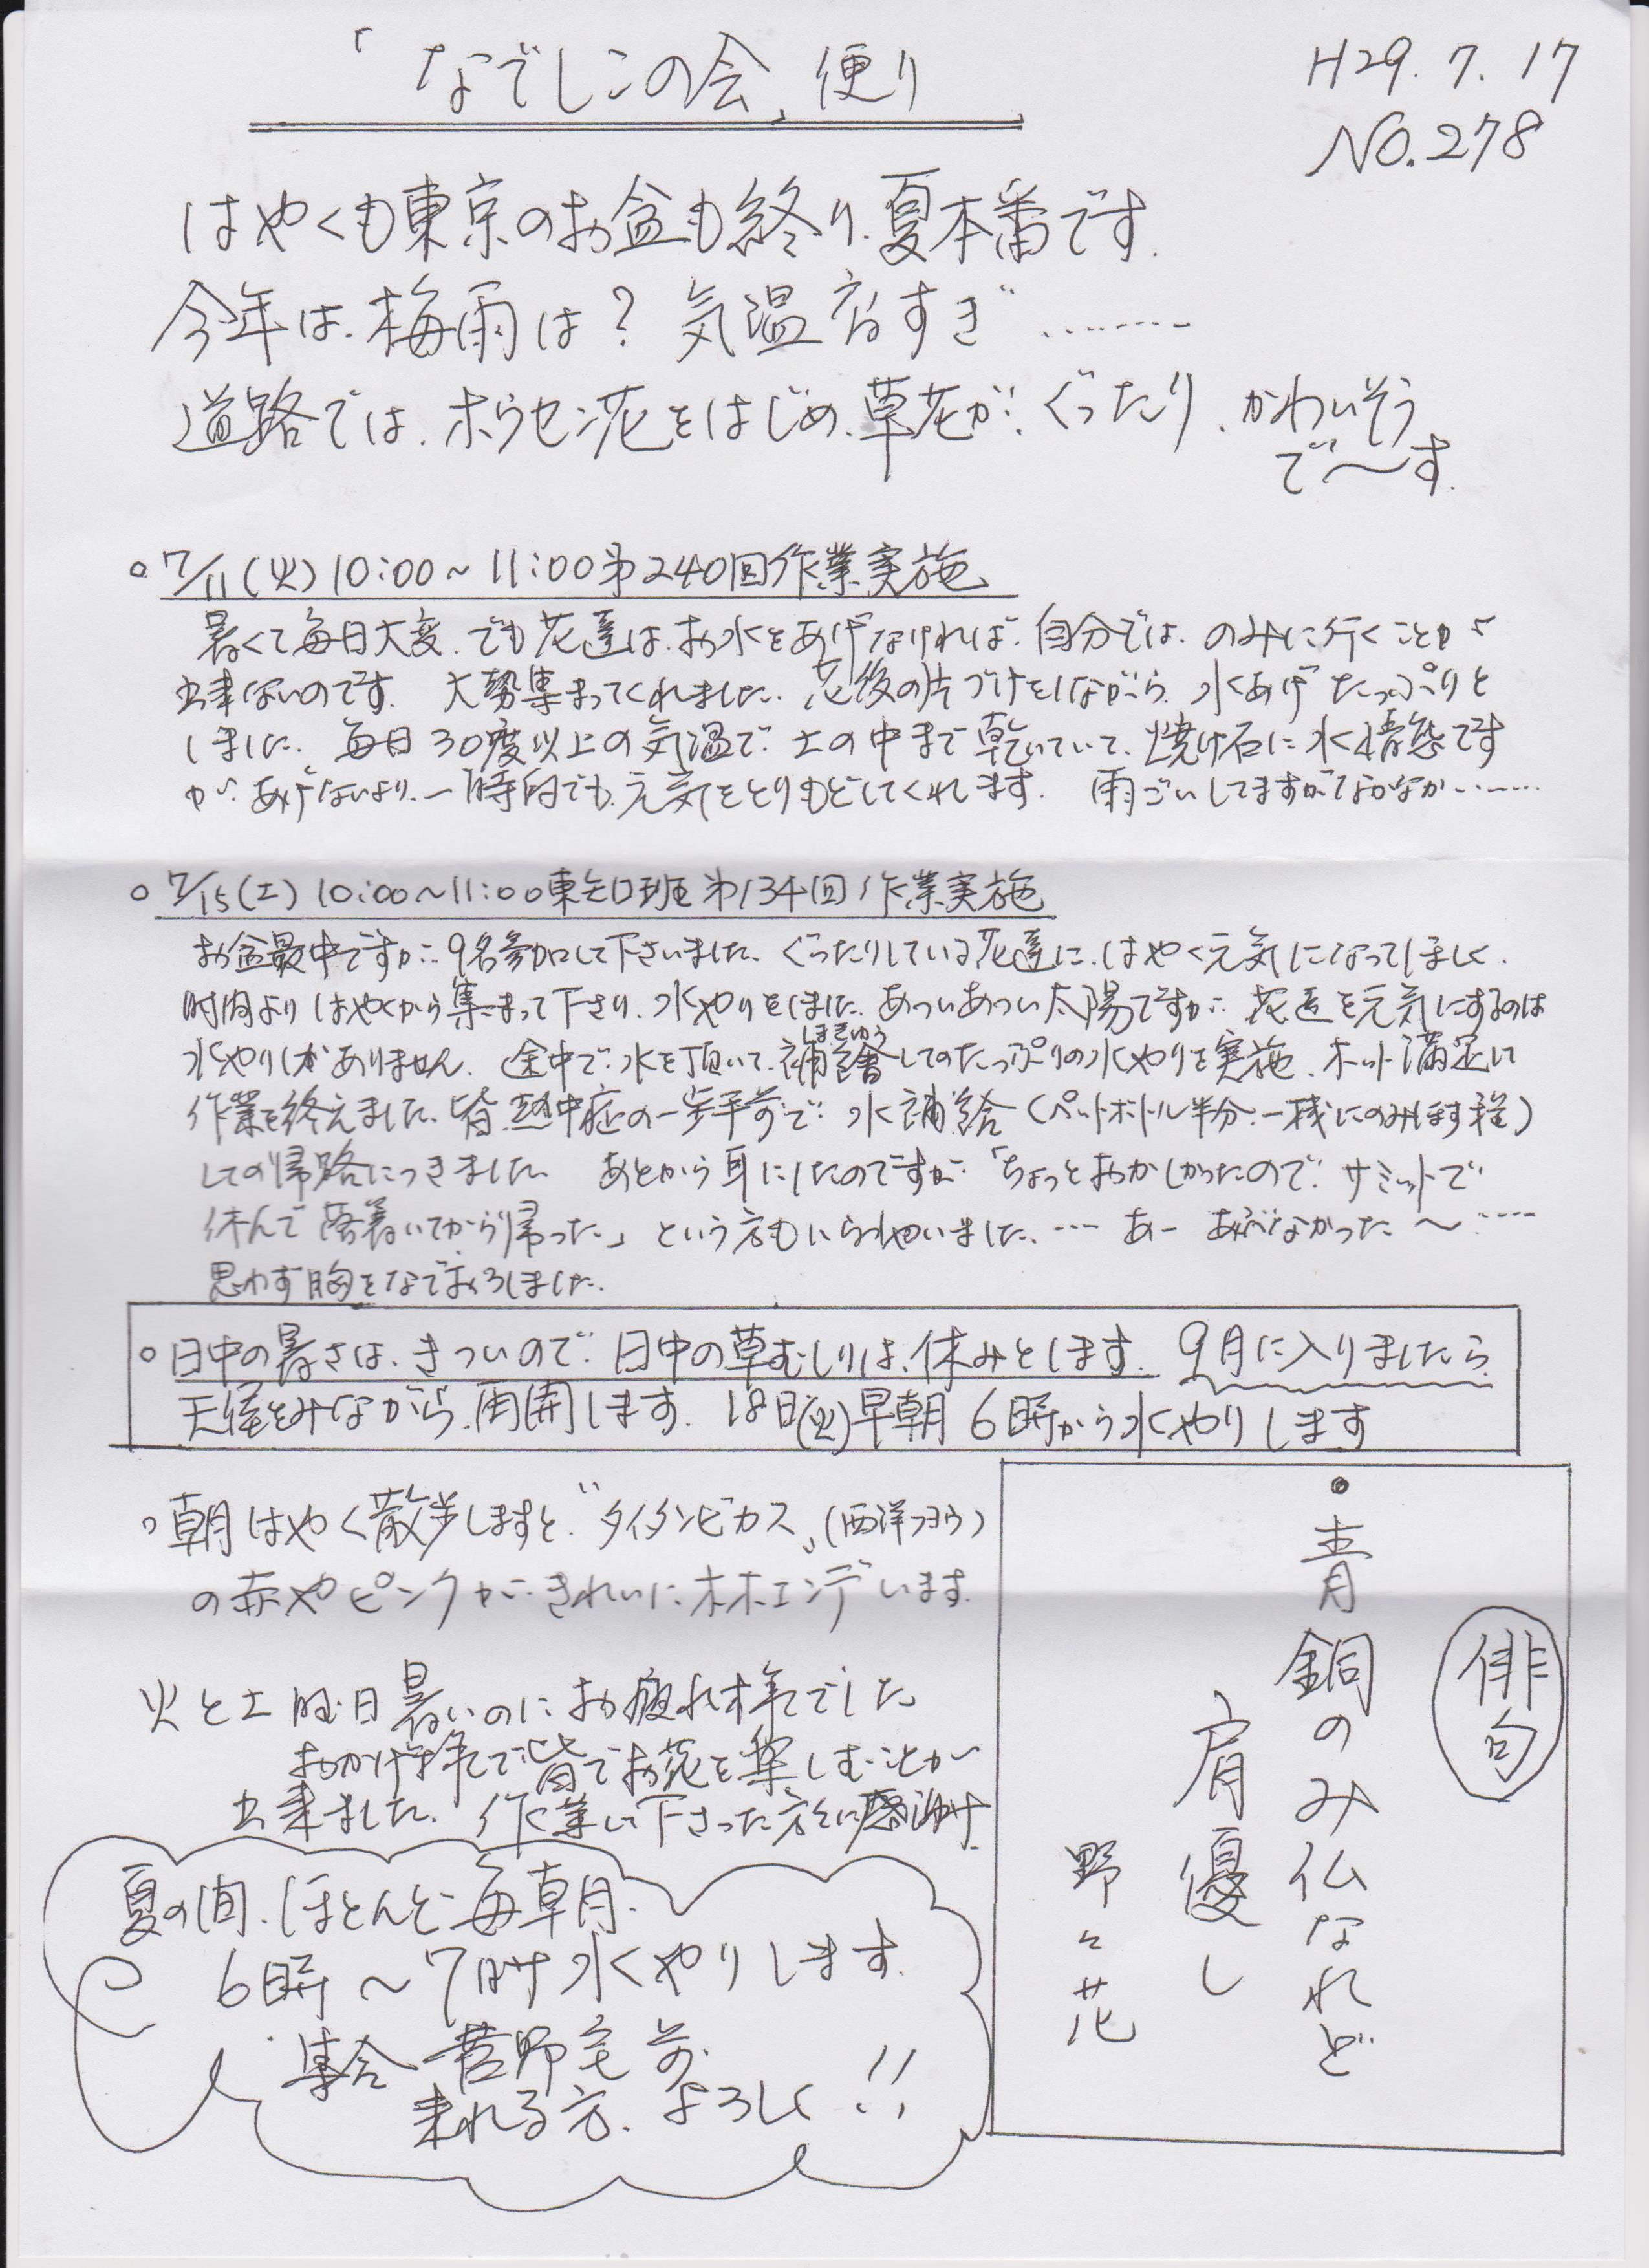 「なでしこの会」便り
H29.7.17
NO.278
はやくも東京のお盆も終り、夏本番です。
今年は、梅雨は？気温高すぎ………
道路では、ホウセン花をはじめ、草花が、ぐったり、かわいそう
で〜す。
○7/11(火)10:00~11:00第240回作業実施
暑くて毎日大変、でも花達は、お水をあげなければ、自分では、のみに行くことが
出来ないのです。大勢集まってくれました。花後の片づけをしながら、水あげたっぷりと
しました。毎日30度以上の気温で、土の中まで乾いていて、焼け石に水状態です
が、あげないより、一時的でも、元気をとりもどしてくれます。雨ごいしてますがなかなか………
○7/15(土)10:00~11:00東矢口班第134回作業実施
お盆最中ですが、9名参加して下さいました。ぐったりしている花達に、はやく元気になってほしく、
時間よりはやくから集まって下さり、水やりをしました。あついあつい太陽ですが、花達を元気にするのは
水やりしかありません。途中で、水を頂いて、補給してのたっぷりの水やりを実施、ホット満足して
作業を終えました。皆、熱中症の一歩手前で、水補給(ペットボトル半分、一機にのみほす程)
しての帰路につきました。あとから耳にしたのですが、「ちょっとおかしかったので、サミットで
休んで落着いてから帰った」という方もいらっしゃいました。…あー あぶなかった〜……
思わず胸をなでおろしました。
○日中の暑さは、きついので、日中の草むしりは、休みとします。9月に入りましたら、
天候をみながら、再開します。18日(火)早朝6時から水やりします
○朝はやく散歩しますと、"タイタンビカス"(西洋フヨウ)
の赤やピンクが、きれいにホホエンデいます。
火と土曜日暑いのにお疲れ様でした
おかげ様で、皆でお花を楽しむことが
出来ました。作業して下さった方々に感謝
夏の間、ほとんど毎朝、
6時〜7時水やりします。
集合 菅野宅前
来れる方、よろしく!!
俳句
・青銅のみ仏なれど
肩優し
野々花